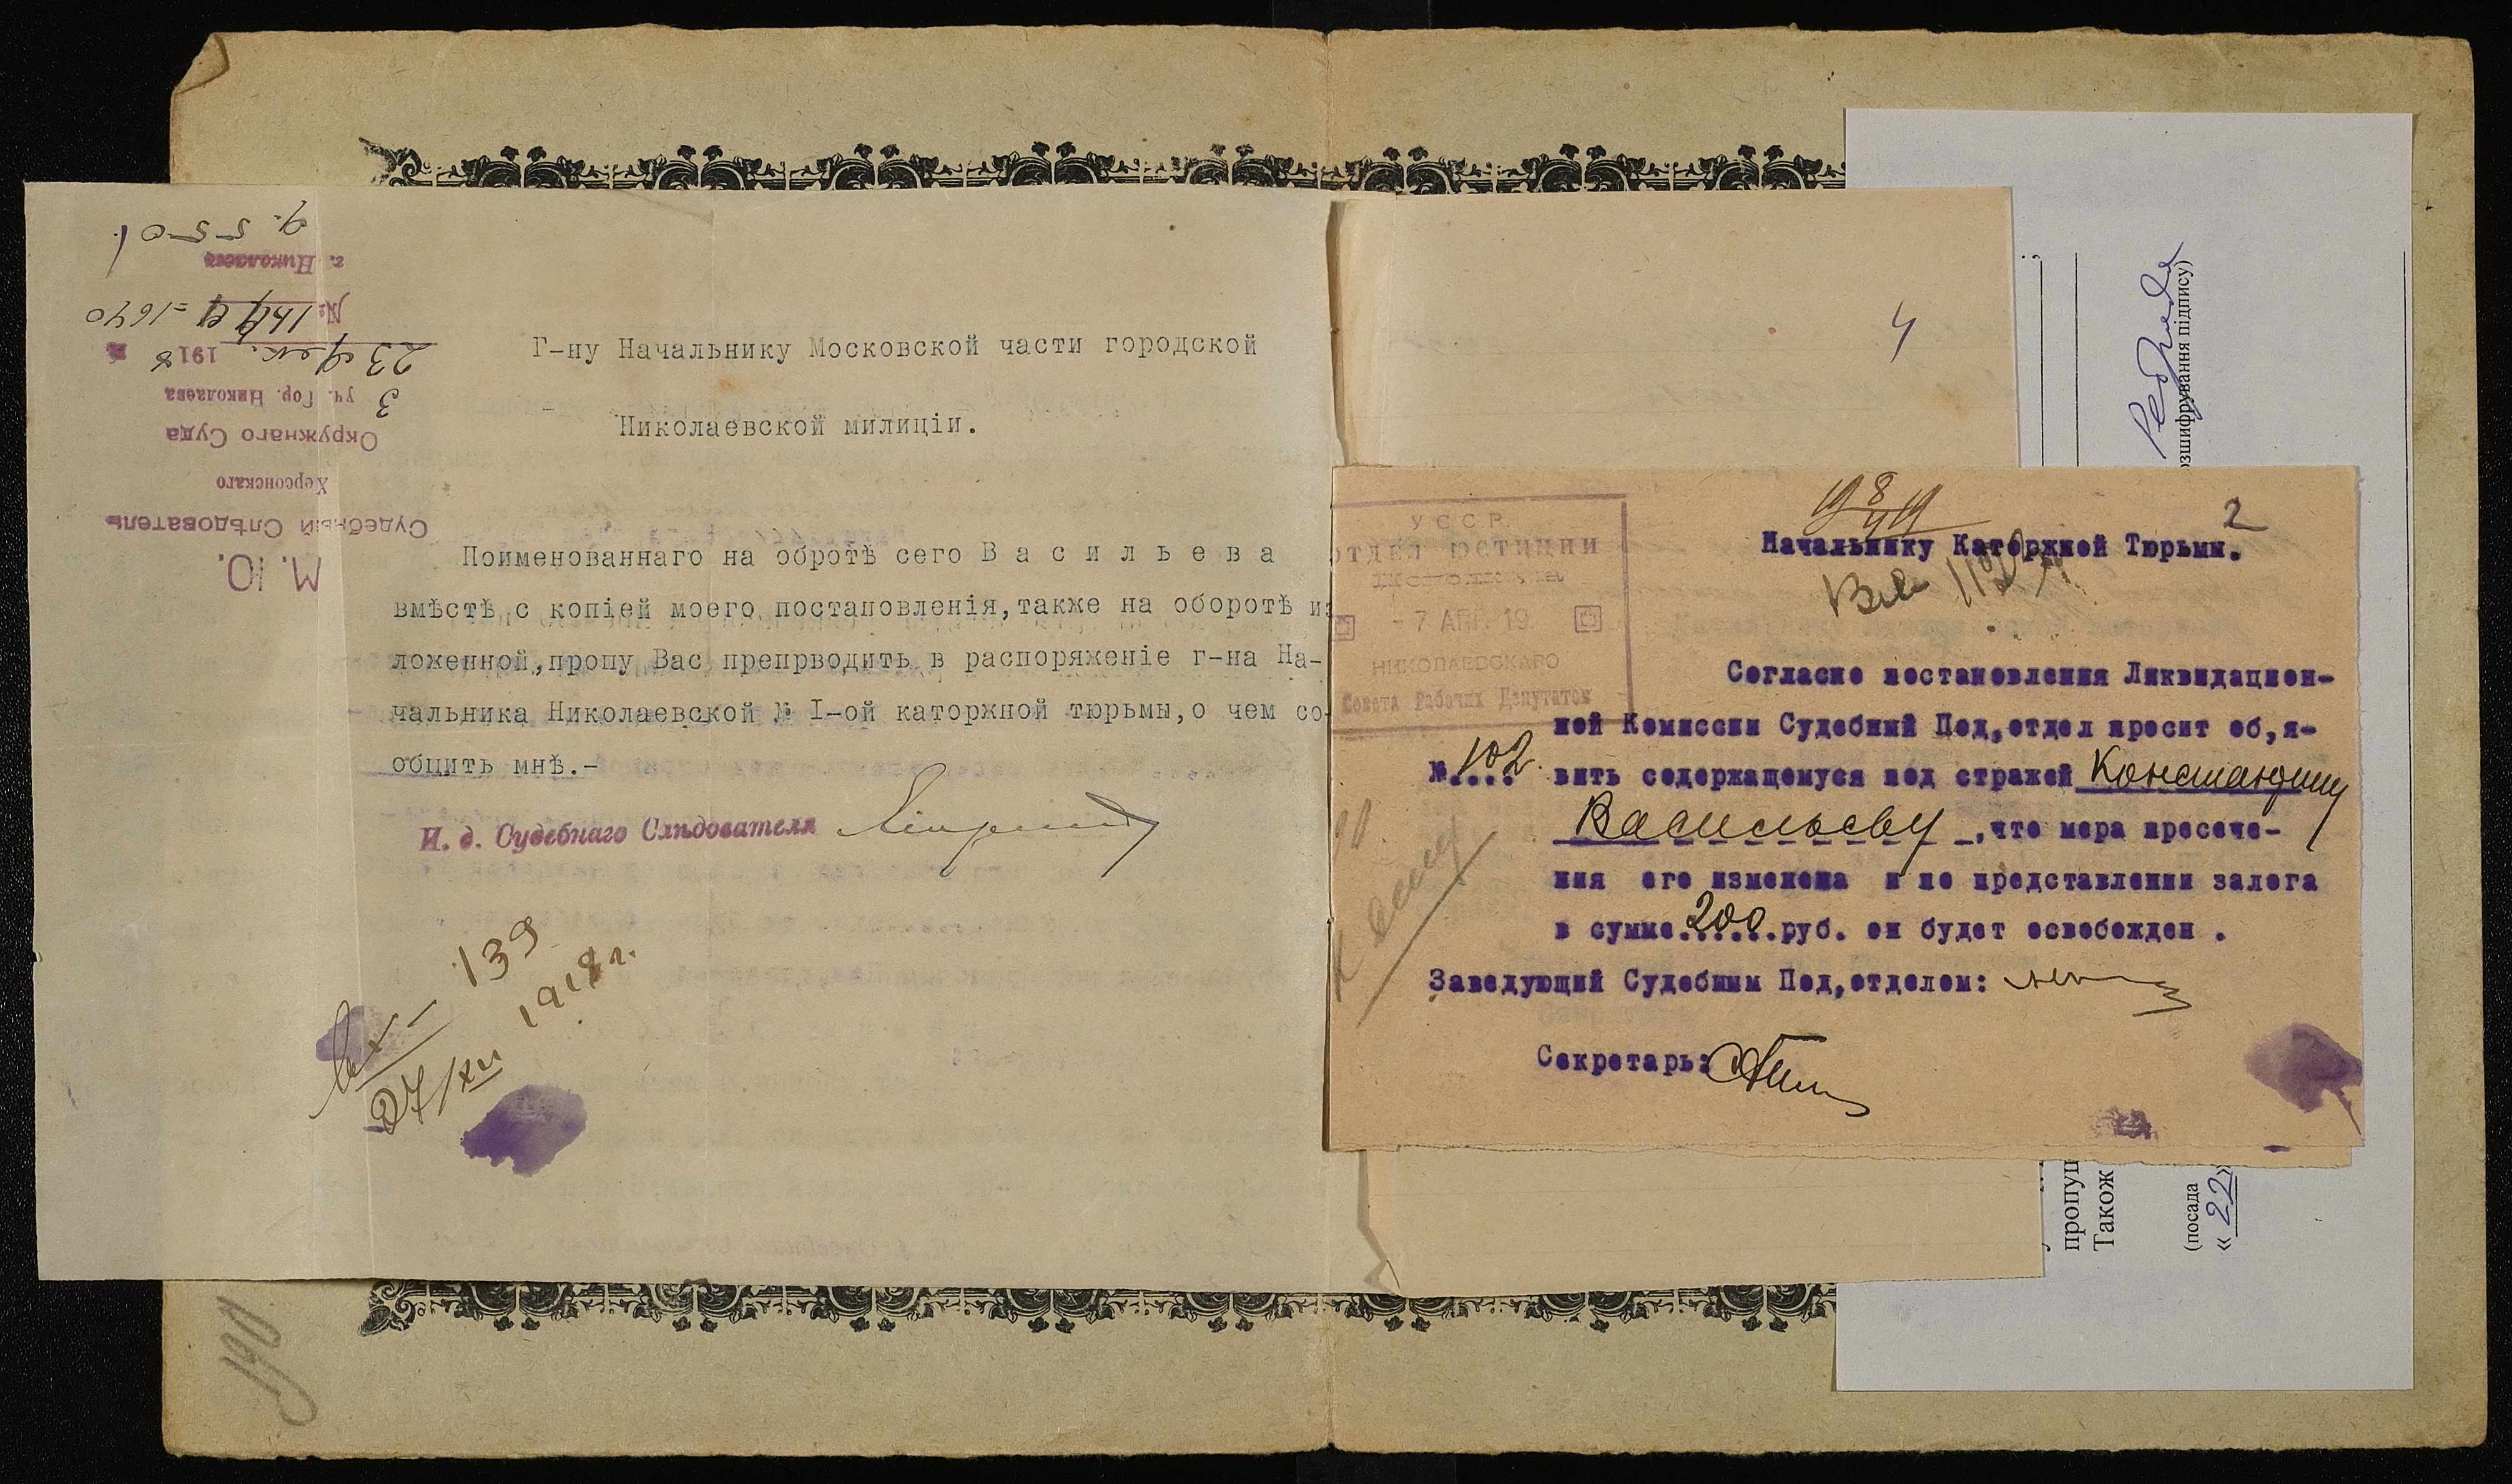 М. Ю.
Судебный Слѣдователь
Херсонскаго
Окружнаго Суда
3 уч. Гор. Николаева
23 Дек. 1918
№ =1640
г. Николаевъ
Д. 550
Г-ну Начальнику Московской части городской
Николаевской милиціи.
Поименованнаго на обротѣ сего В а с и л ь е в а
вмѣстѣ с копіей моего постановленія,также на оборотѣ из
ложенной,пропу Вас препрводить в распоряженіе г-на На-
чальника Николаевской № I-ой каторжной тюрьмы,о чем со-
общить мнѣ.-
И. д. Судебнаго Слѣдователя
Вх 139
27/XII 1918 г.
190
4
2
УССР.
ОТДЕЛ ЮСТИЦИИ
- 7 АПР. 19.
НИКОЛАЕВСКАГО
Совета Рабочих Депутатов
Начальнику Каторжной Тюрьмы.
Согласно постановления Ликвидацион-
ной Комиссии Судебный Под,отдел просит об,я-
№ 102. вить содержащемуся под стражей Константину
Васильеву ,что мера пресече-
ния его изменена и по представлении залога
в сумме 200 руб. он будет освобожден .
Заведующий Судебным Под,отделом:
Секретарь:
зшифрування підпису)
пропущ
Також
(посада
« 22 »